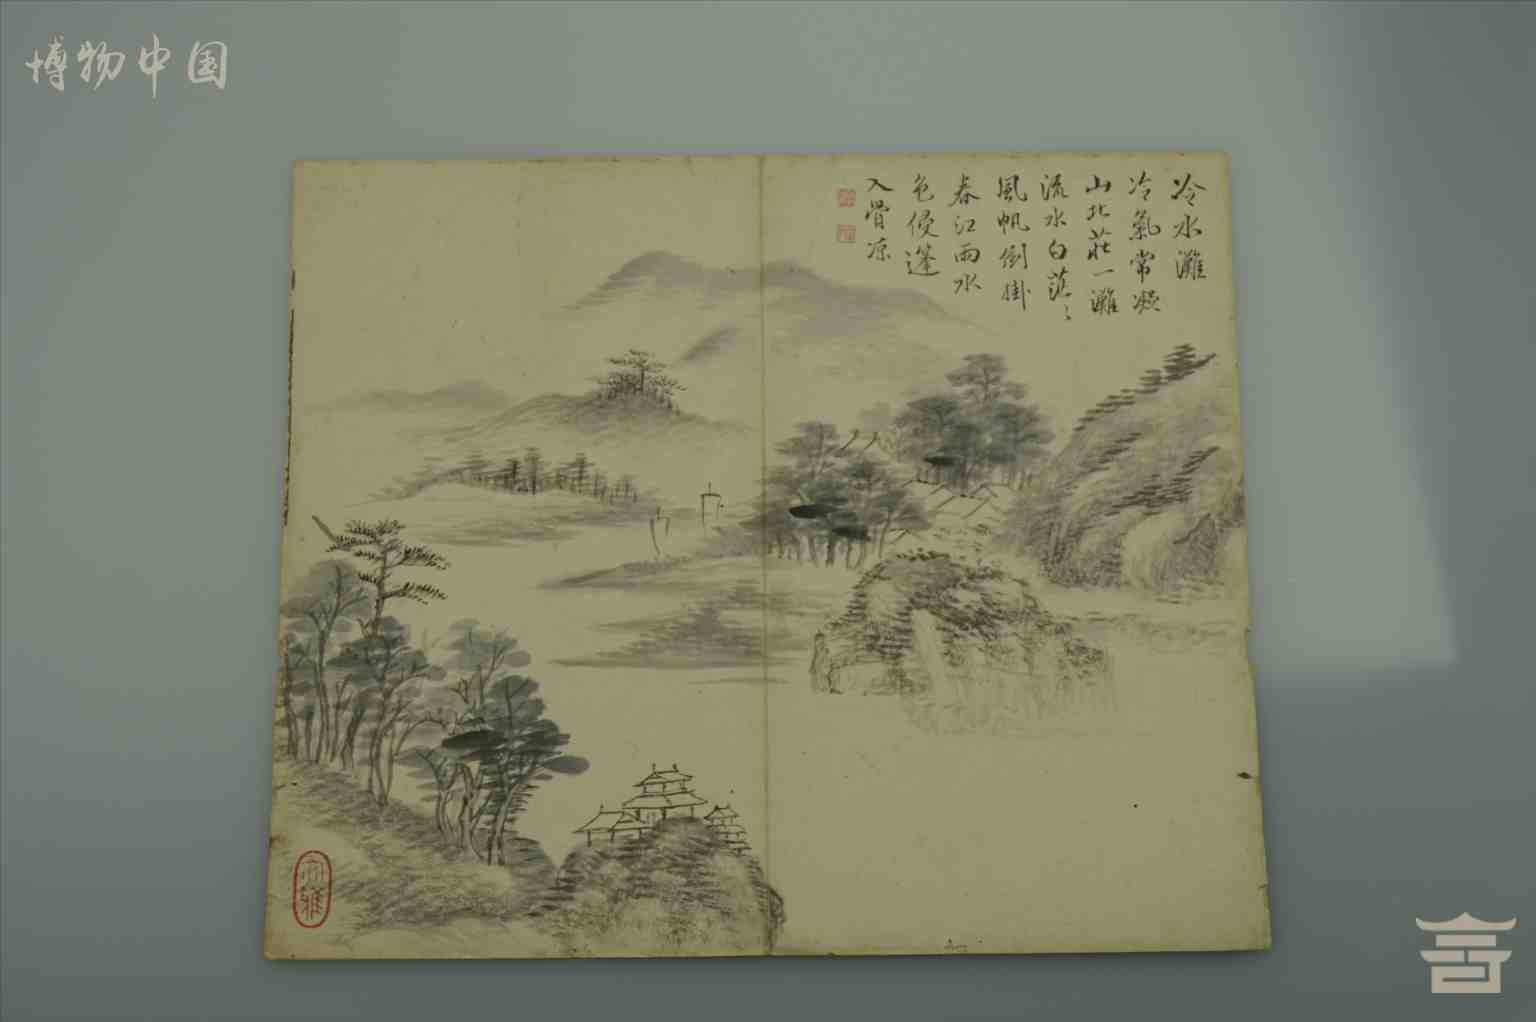 博物中国
冷水灘
冷氣常凝
山北莊一灘
流水白茫〻
風帆倒掛
春江雨水
色侵篷
入骨凉
雅